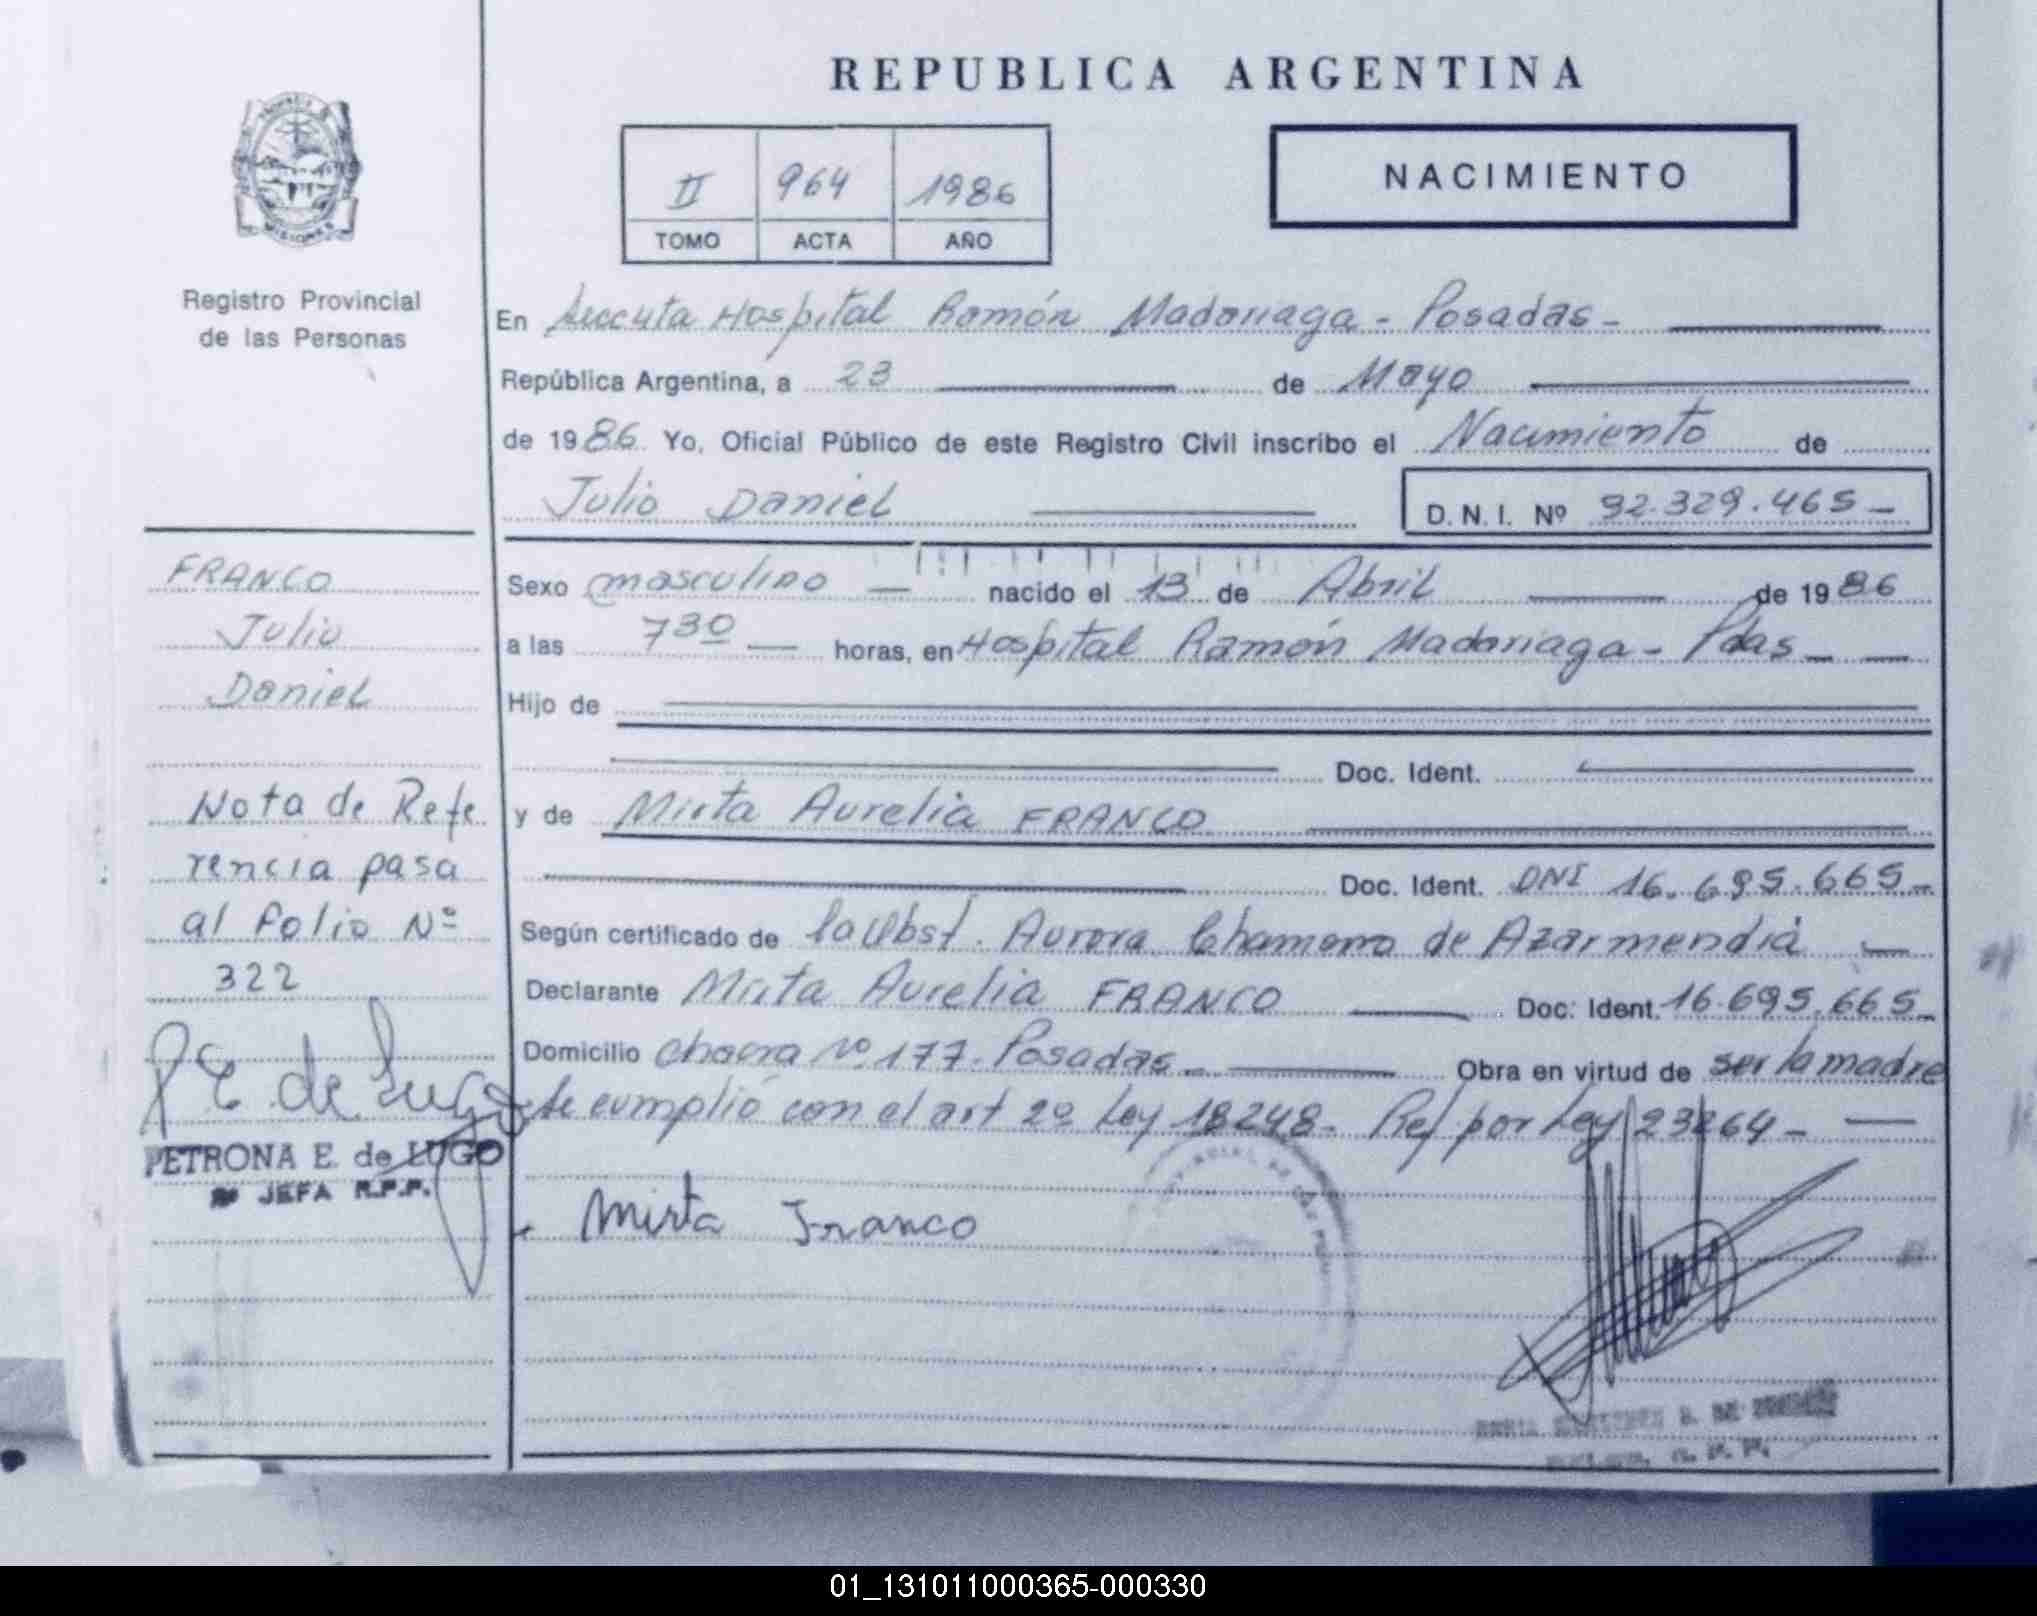 REPUBLICA ARGENTINA
II 964 1986
TOMO ACTA AÑO
NACIMIENTO
MISIONES
Registro Provincial
de las Personas
En Hospital Ramón Madariaga - Posadas -
República Argentina, a 23 de Mayo
de 1986 Yo, Oficial Público de este Registro Civil inscribo el Nacimiento de
Julio Daniel D. N. I. Nº 92.329.465 -
Sexo masculino nacido el 13 de Abril de 1986
a las 7 30 horas, en Hospital Ramón Madariaga - Pdas -
Hijo de
Doc. Ident.
y de Mirta Aurelia FRANCO
Doc. Ident. DNI 16.695.665 -
Según certificado de la Obst. Aurora Chamorro de Azarmendia
Declarante Mirta Aurelia FRANCO Doc: Ident. 16.695.665 -
Domicilio Chacra nº 177 - Posadas - Obra en virtud de ser la madre
Se cumplió con el art 2º Ley 18248 - Ref por Ley 23264 -
Mirta Franco
FRANCO
Julio
Daniel
Nota de Refe
rencia pasa
al folio Nº
322
P E de Lugo
PETRONA E. de LUGO
JEFA R.P.P.
01_131011000365-000330